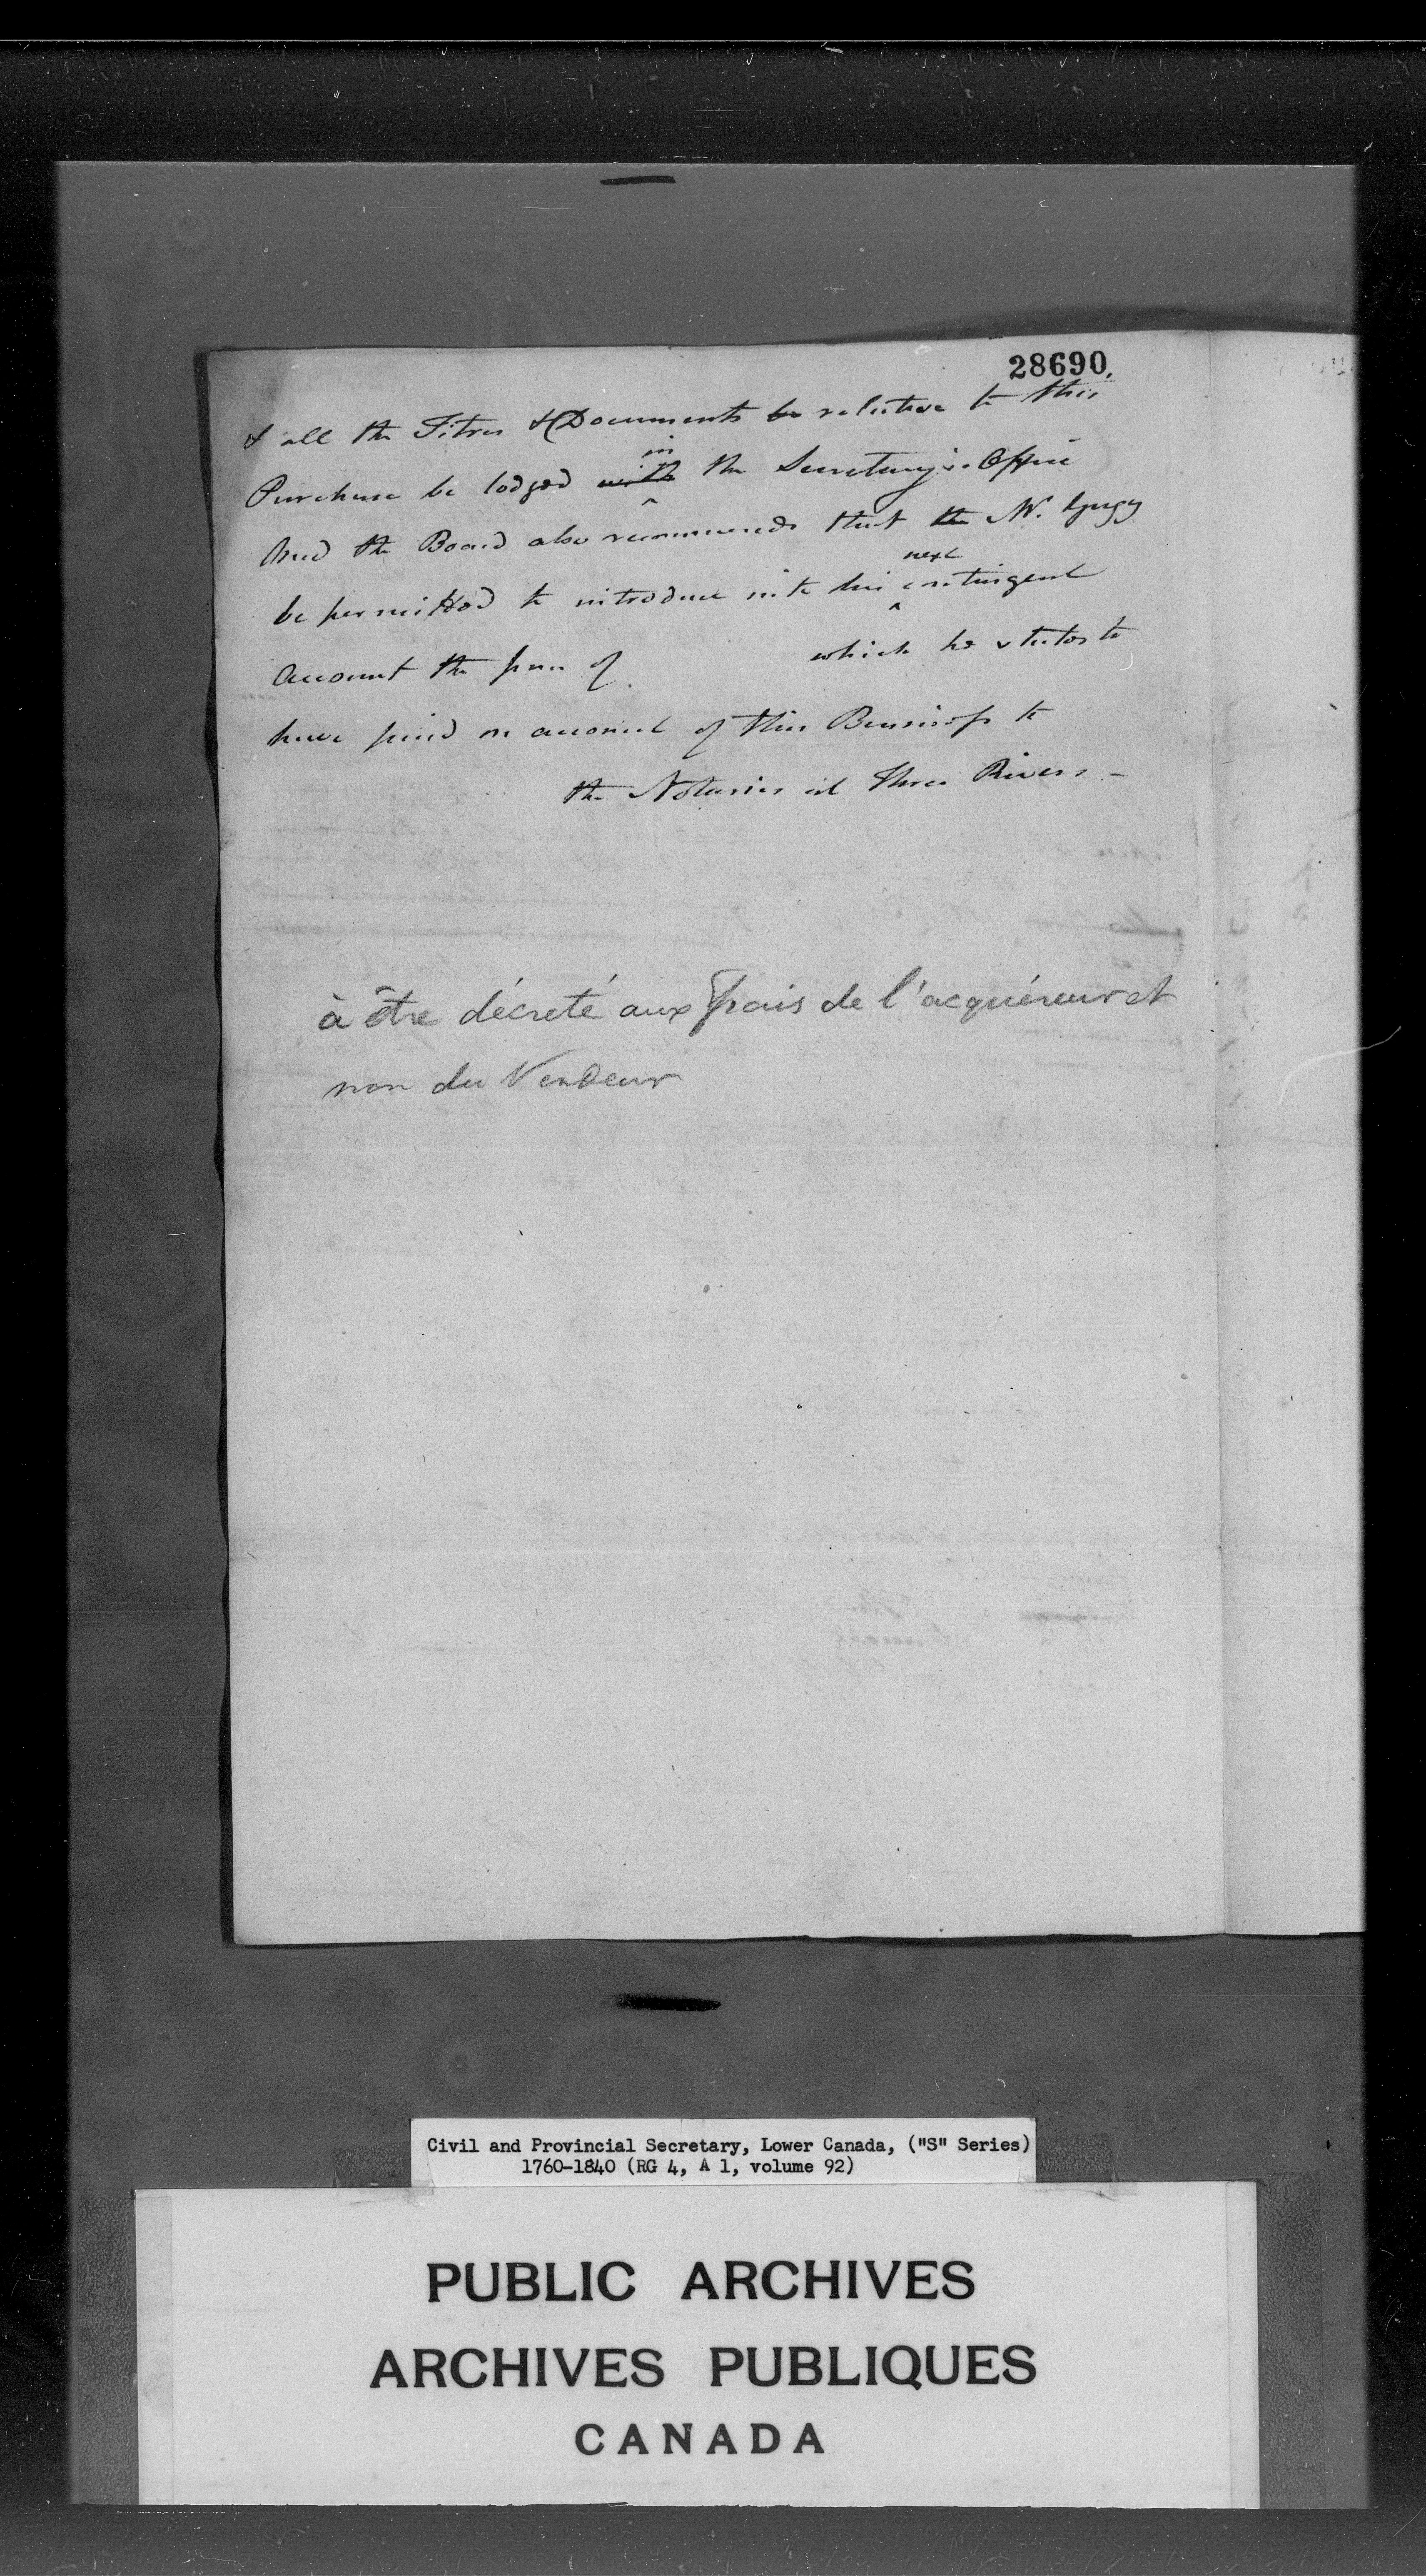 28690.
& all the Titres & Documents be relative to this
in
Purchase be lodged with the Secretary's Office
And the Board also recommends that the Mr. Gugy
next
be permitted to introduce into his contingent
Account the sum of which he states to
have paid on account of this Business to
the Notaries at Three Rivers -
à être décreté aux frais de l'acquéreur et
non du Vendeur
Civil and Provincial Secretary, Lower Canada, ("S" Series)
1760-1840 (RG 4, A 1, volume 92)
PUBLIC ARCHIVES
ARCHIVES PUBLIQUES
CANADA